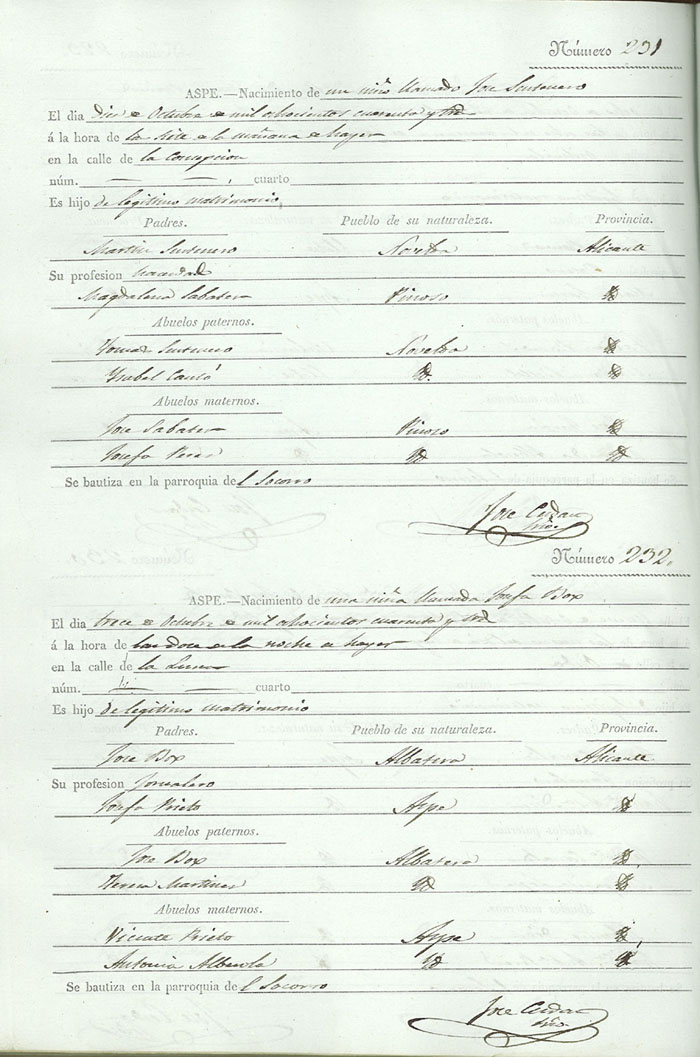 Número 231
ASPE.—Nacimiento de un niño llamado Jose
El dia diez de Octubre de mil ochocientos cuarenta y tres
á la hora de las siete de la mañana de hayer
en la calle de la Concepcion
núm. — — , cuarto
Es hijo de legitimo matrimonio,
Padres. Pueblo de su naturaleza. Provincia.
Martin Novelda Alicante
Su profesion hacendad
Magdalena Sabater Pinoso Yd
Abuelos paternos.
Tomas Novelda Yd
Ysabel Cantó Yd. Yd
Abuelos maternos.
Jose Sabater Pinoso Yd
Josefa Perez Yd Yd
Se bautiza en la parroquia del Socorro
Jose Cerdan
Srio.
Número 232.
ASPE.—Nacimiento de una niña llamada Josefa Box
El dia trece de Octubre de mil ochocientos cuarenta y tres
á la hora de las doce de la noche de hayer
en la calle de la
núm. — — cuarto
Es hijo de legitimo matrimonio
Padres. Pueblo de su naturaleza. Provincia.
Jose Box Albatera Alicante
Su profesion Jornalero
Josefa Prieto Aspe Yd
Abuelos paternos.
Jose Box Albatera Yd.
Teresa Martinez Yd Yd
Abuelos maternos.
Vicente Prieto Aspe Yd,
Antonia Alberola Yd Yd
Se bautiza en la parroquia del Socorro
Jose Cerdan
Srio.